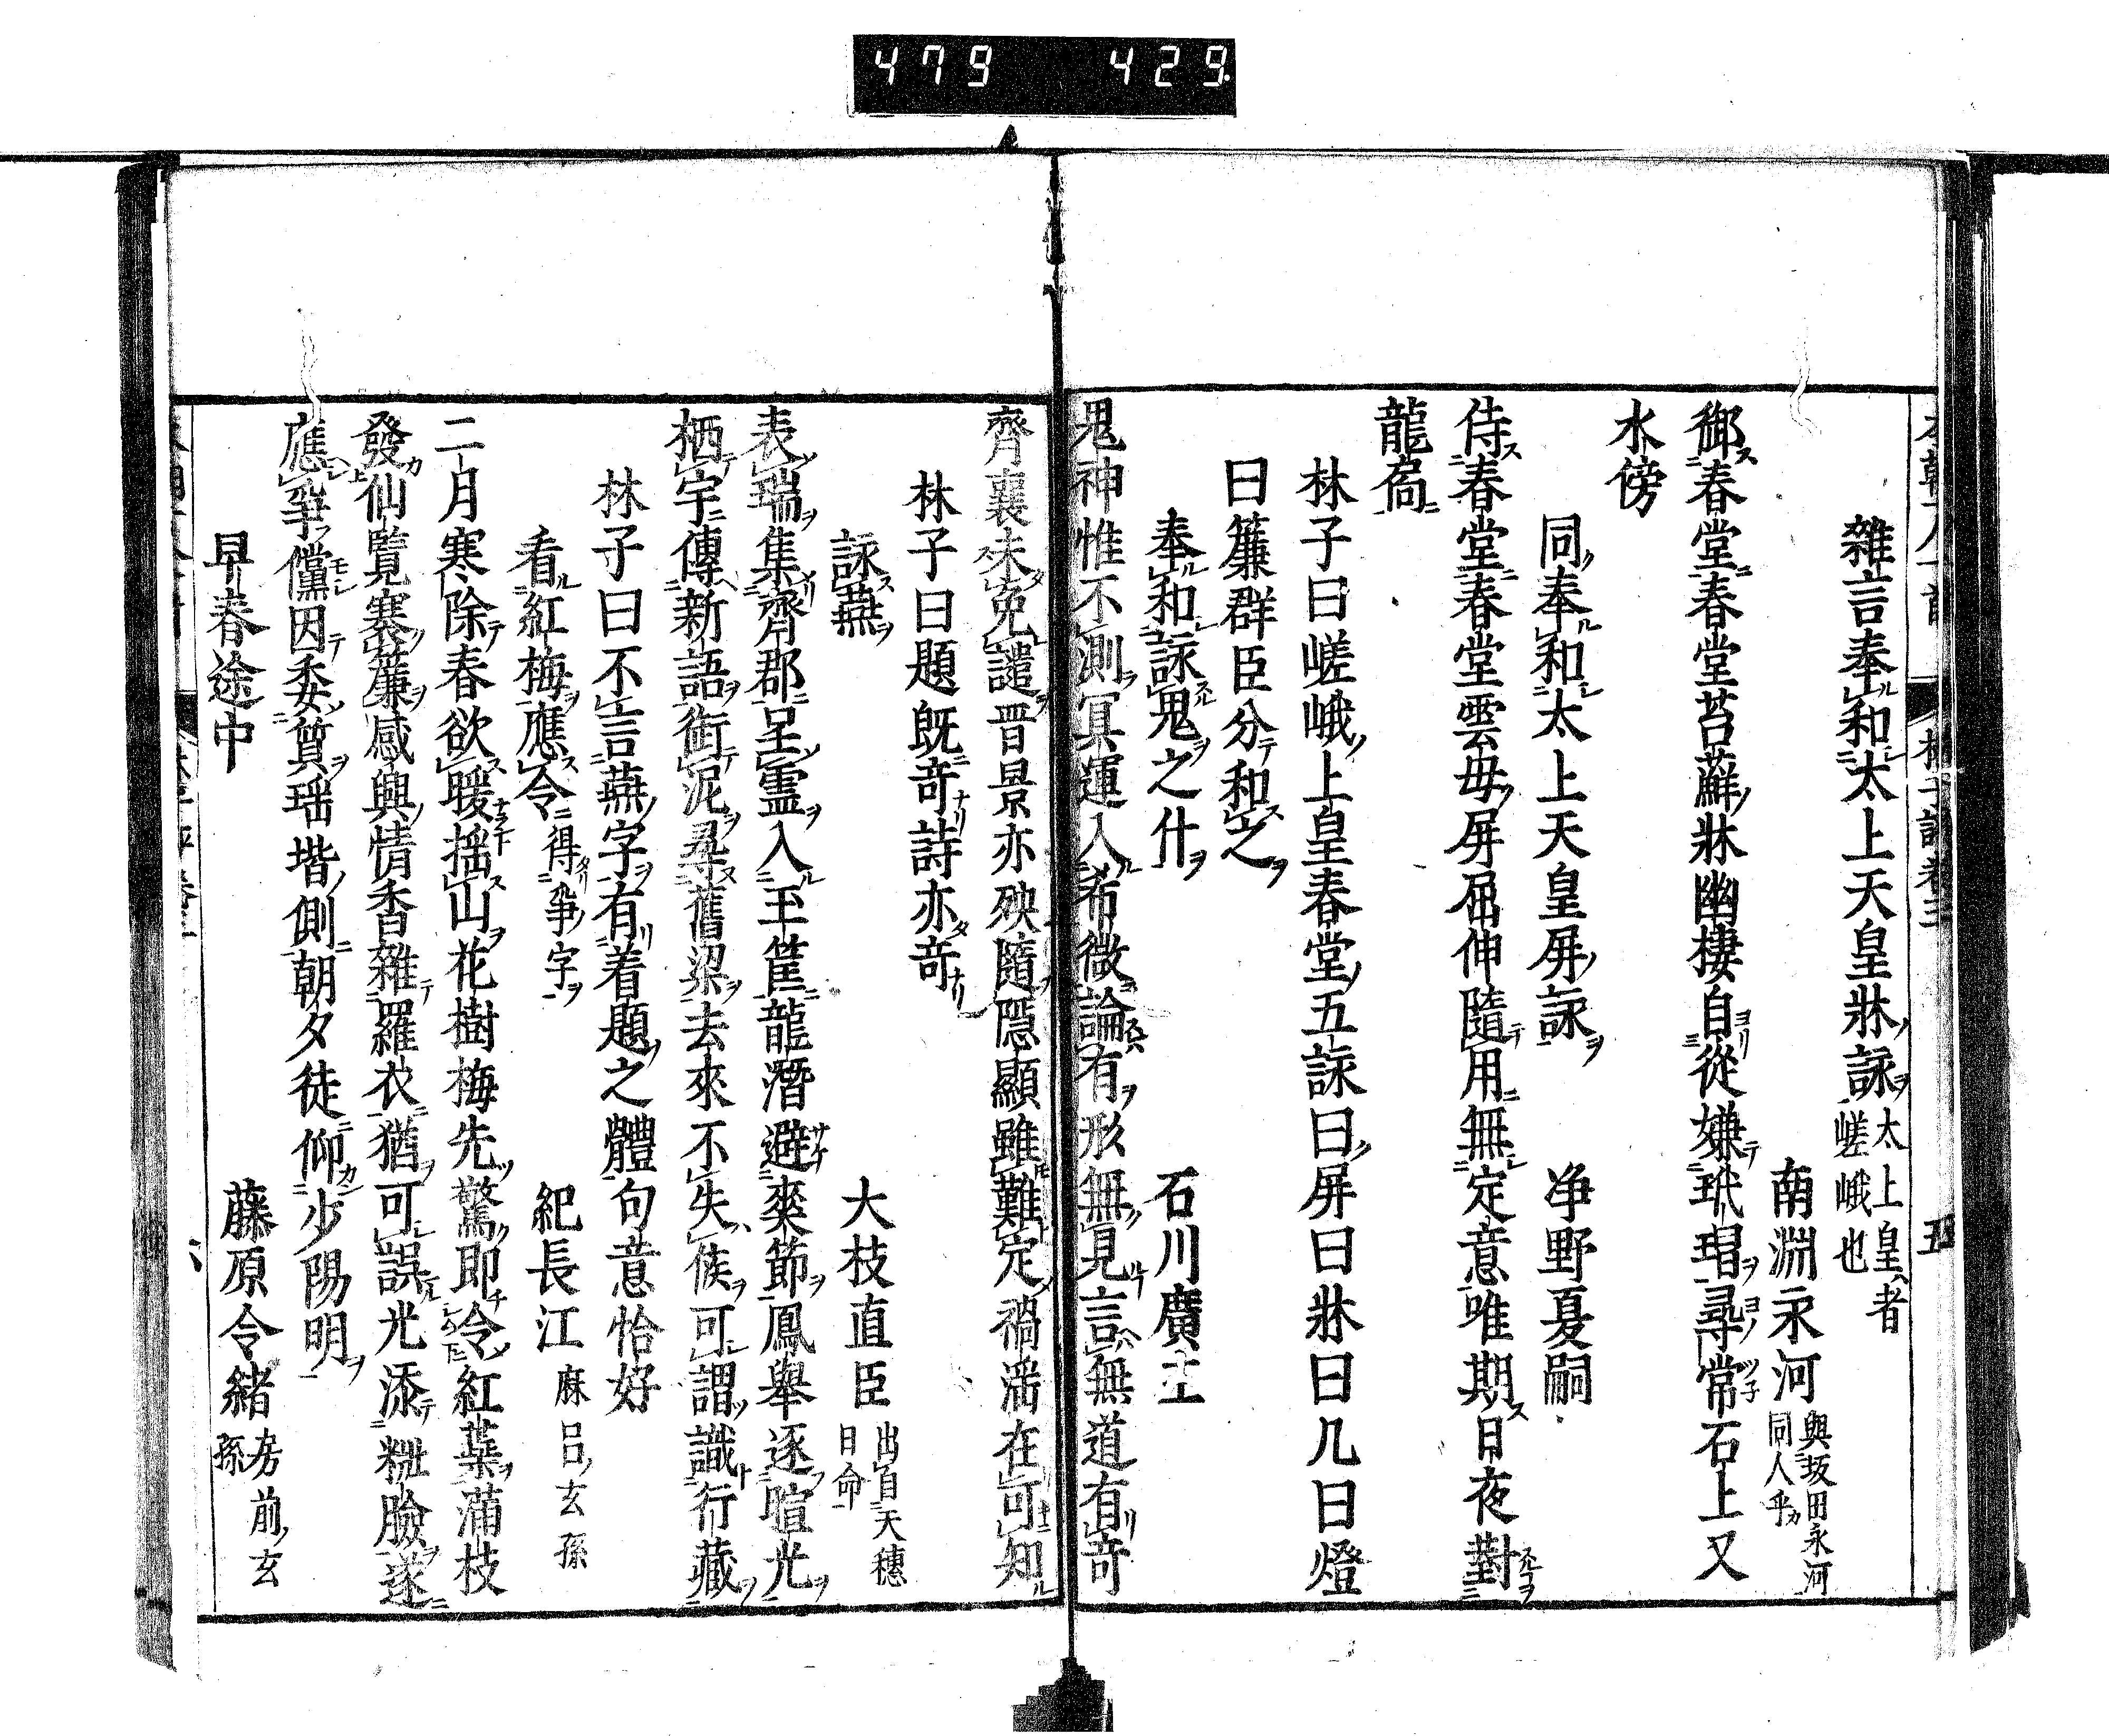 479 429
雜言奉和太上天皇牀詠 太上皇者嵯峨也
南淵永河 與坂田永河同人乎
御春堂春堂苔蘚牀幽棲自從嫌玳瑁尋常石上又
水傍
同奉和太上天皇屏詠 净野夏嗣
侍春堂春堂雲母屏屈伸隨用無定意唯期日夜對
龍扃
林子曰嵯峨上皇春堂五詠曰屏曰牀曰几曰燈
曰簾群臣分和之
奉和詠鬼之什 石川廣主
鬼神惟不測冥運入希微論有形無見言無道有竒
齊襄未免譴晋景亦殃隨隱顯雖難定禍滛在可知
林子曰題既竒詩亦竒
詠燕 大枝直臣 出自天穗日命
表瑞集齊郡呈靈入玉筐龍潛避來節鳳舉逐暄光
栖宇傳新語銜泥尋舊梁去來不失候可謂識行藏
林子曰不言燕字有着題之體句意恰好
看紅梅應令 得爭字 紀長江 麻呂玄孫
二月寒除春欲暖揺山花樹梅先驚即令紅蘂滿枝
發仙覽寒簾感興情香雜羅衣猶可誤光添粧臉遂
應爭儻因委質瑶堦側朝夕徒仰少陽明
早春途中 藤原令緒 房前玄孫
五
六